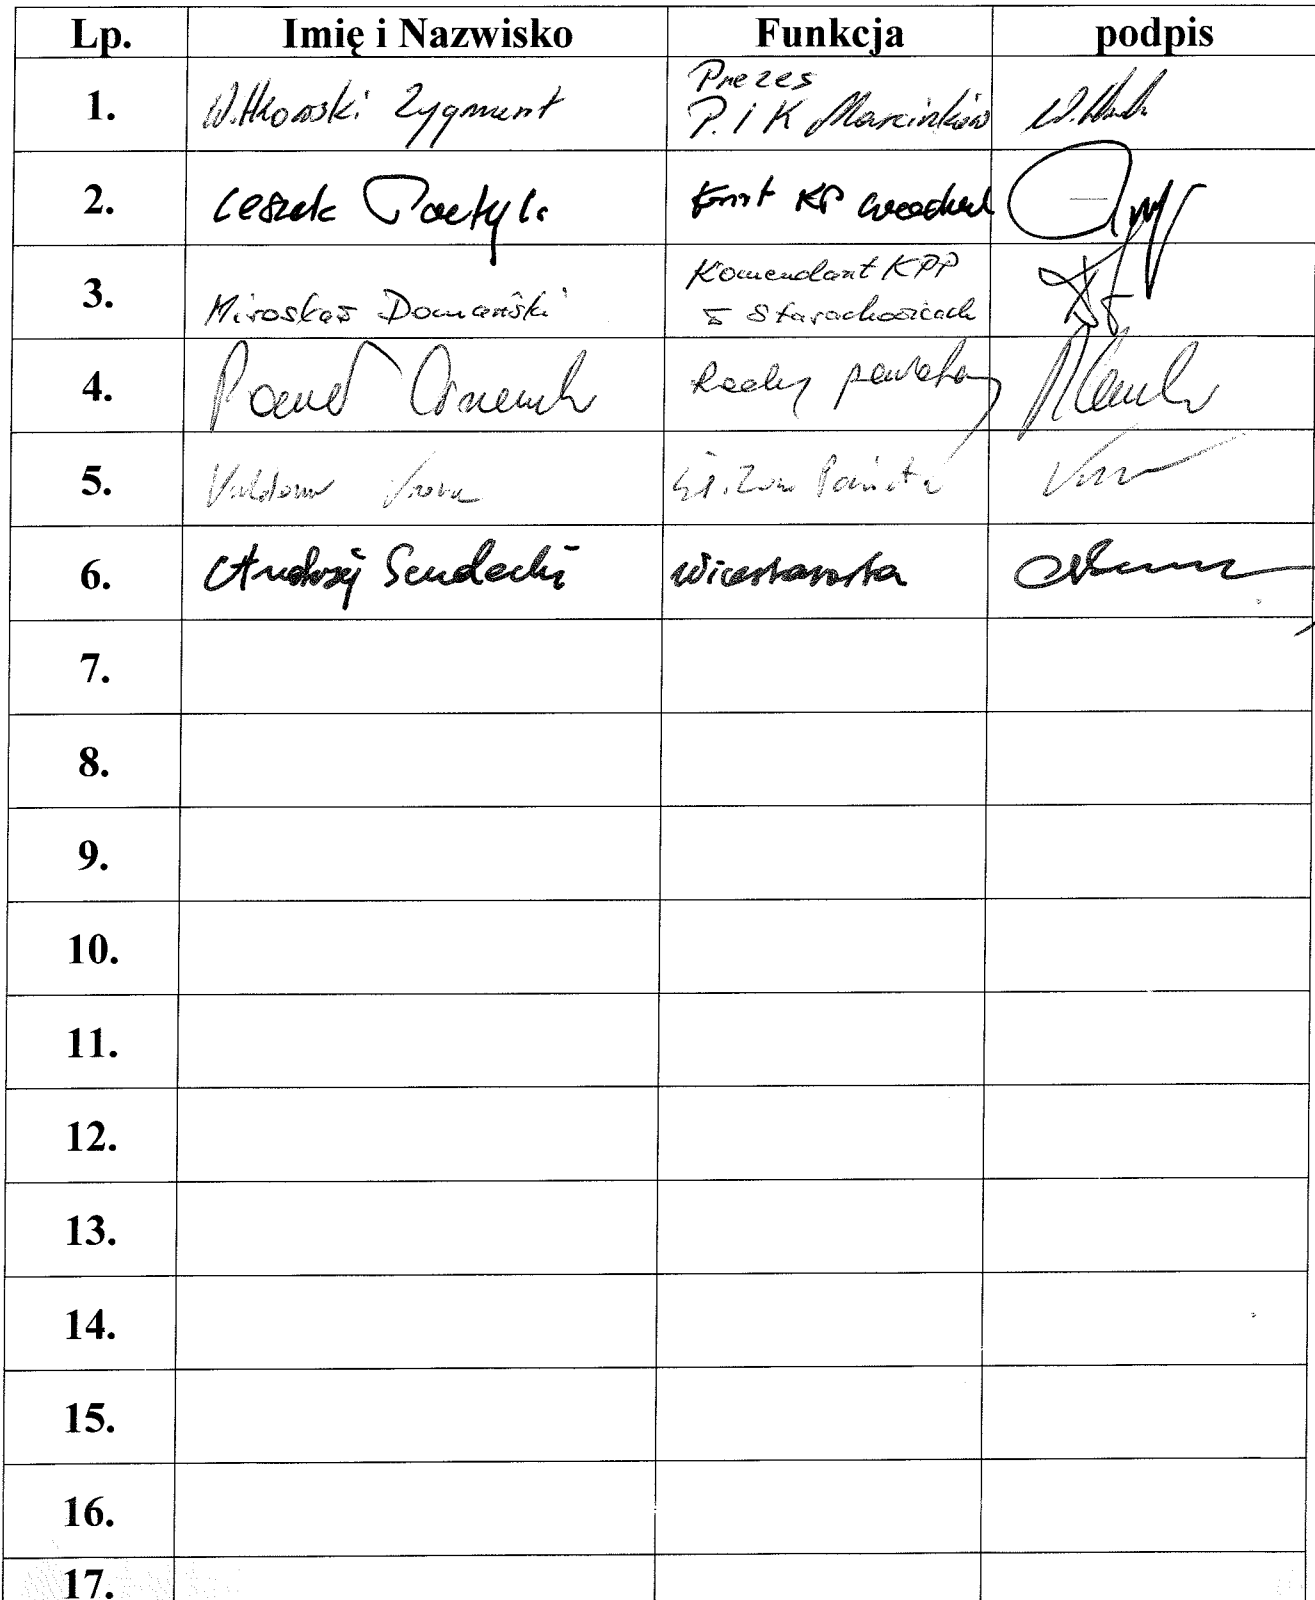 Lp. Imię i Nazwisko Funkcja podpis
1. Witkowski Zygmunt Prezes
P. i K Marcinków
2. Leszek
3. Mirosław Domański Komendant KPP
w Starachowicach
4. Paweł Radny powiatowy
5. Waldemar
6. Andrzej Sendecki Wicestarosta
7.
8.
9.
10.
11.
12.
13.
14.
15.
16.
17.